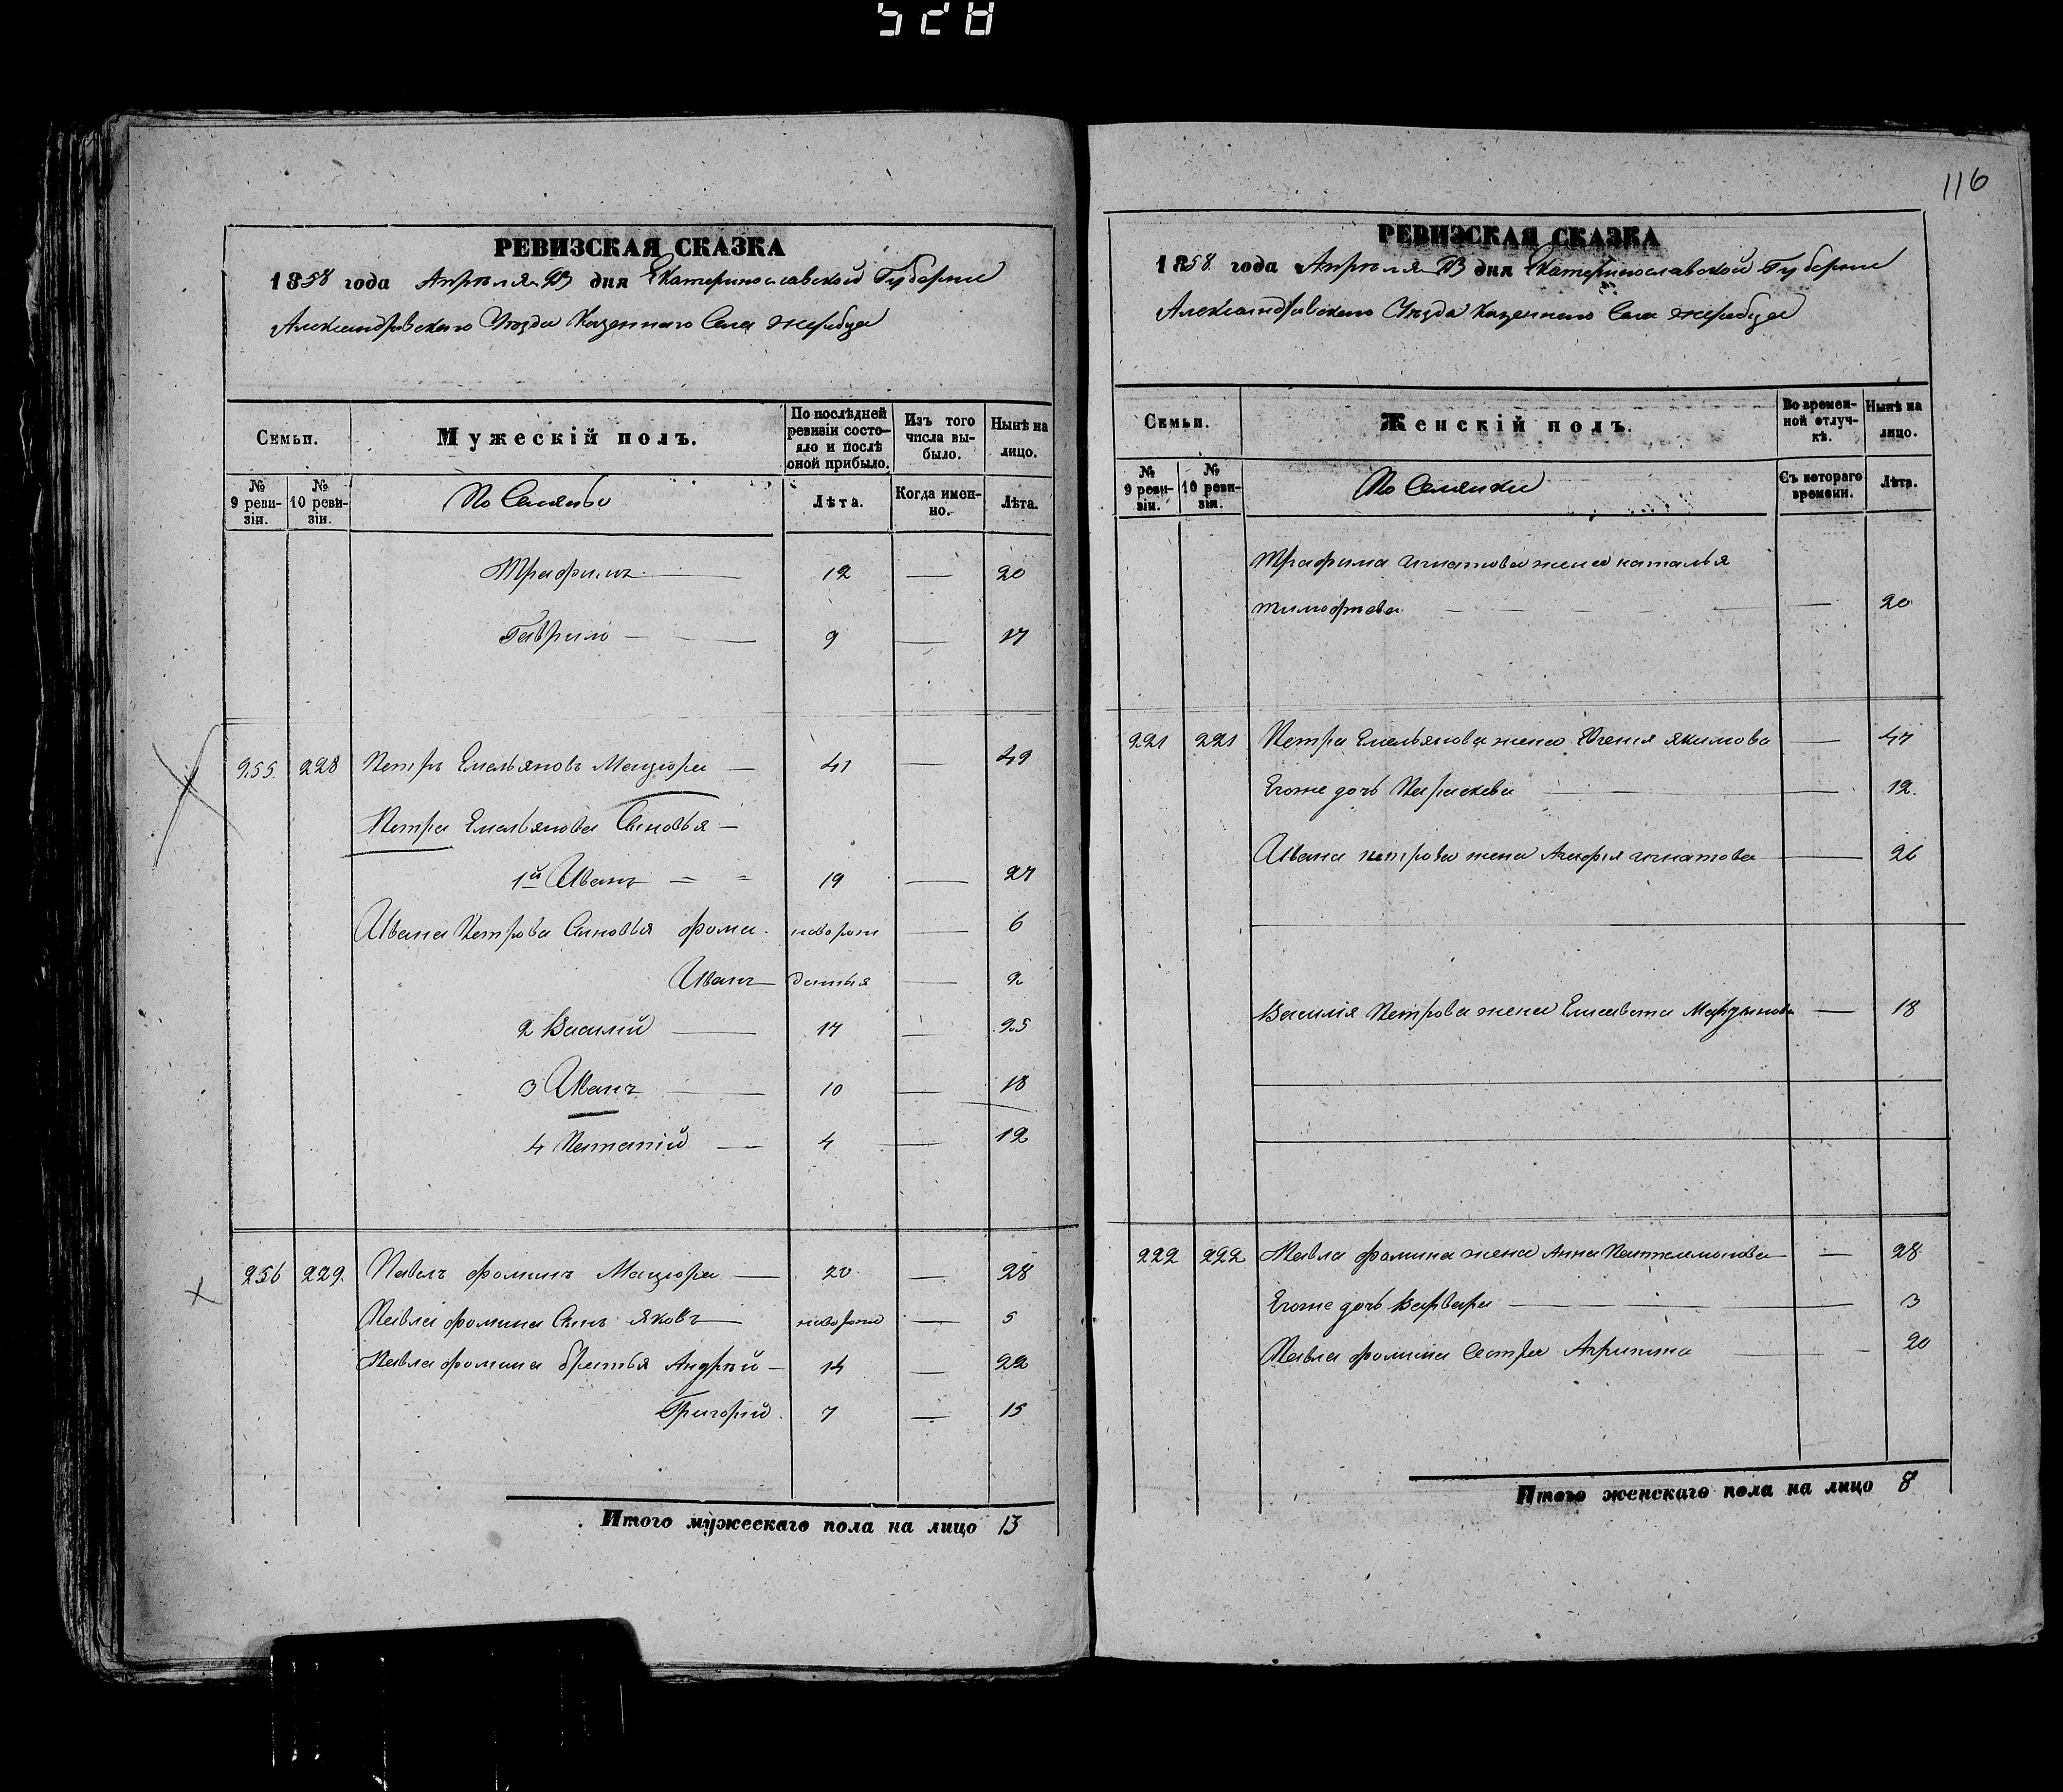 528
116
РЕВИЗСКАЯ СКАЗКА
1858 года Апрѣля дня Екатеринославской Губерніи
Александровскаго Уѣзда Казеннаго Села жеребца
Семьи.
Мужескій полъ.
По послѣдней ревизіи состояло и послѣ оной прибыло.
Изъ того числа выбыло.
Ныне на лицо.
№ 9 ревизіи.
№ 10 ревизіи.
Лѣта.
Когда именно.
Лѣта.
Трафимъ 12 — 20
Гаврило 9 — 17
255 228 Петръ Емельяновъ Мацюра — 41 — 49
Петра Емельянова Сыновья —
1й Иванъ 19 — 27
Ивана Петрова Сыновья фома новорож — 6
Иванъ — 2
2 Василій 17 — 25
3 Иванъ 10 — 18
4 4 — 12
256 229 Павелъ фоминъ Мацюра 20 — 28
Павла фомина Сынъ яковъ — 5
Павла фомина братья Андрѣй — 14 — 22
Григорій 7 — 15
Итого мужескаго пола на лицо 13
РЕВИЗСКАЯ СКАЗКА
1858 года Апрѣля дня Екатеринославской Губерніи
Александровскаго Уѣзда Казеннаго Села жеребца
Семьи.
Женскій полъ.
Во временной отлучкѣ.
Нынѣ на лицо.
№ 9 ревизіи.
№ 10 ревизіи.
Съ котораго времени.
Лѣта.
Трафима игнатова жена наталья
тимофѣева — 20
221 221 Петра Емельянова жена Евгенія якимова — 47
Егоже дочь Параскева — 12
Ивана петрова жена игнатова — 26
Василія Петрова жена Елисавета — 18
222 222 Павла фомина жена Анна Пантелимонова — 28
Егоже дочь Варвара — 3
Павла фомина Сестра Агрипина — 20
Итого женскаго пола на лицо 8